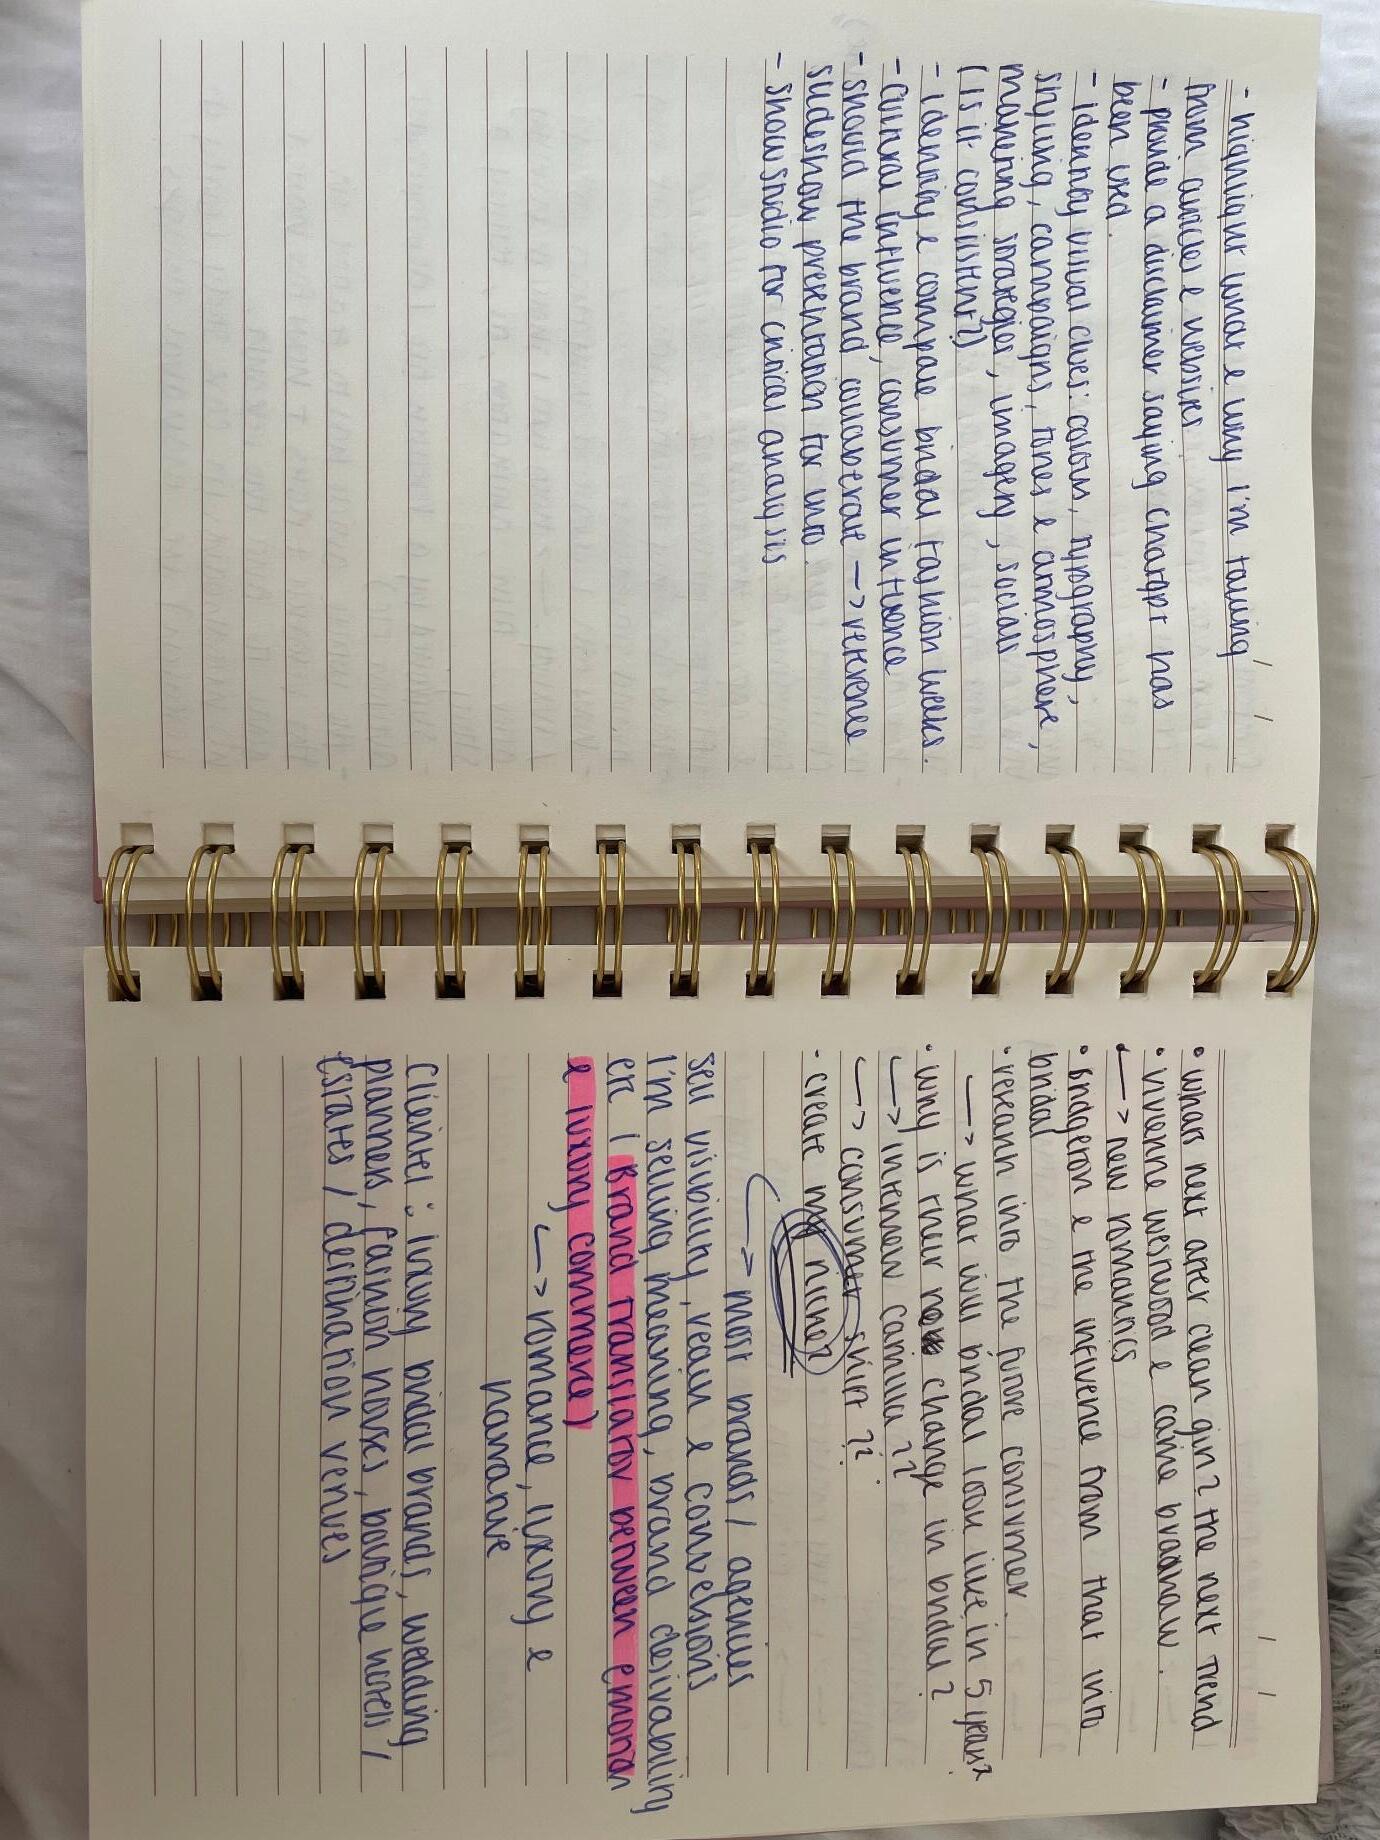 - highlight what & why I'm taking
from articles & websites
- provide a disclaimer saying chatgpt has
been used.
- identify visual clues: colours, typography,
styling, campaigns, tones & atmosphere,
marketing strategies, imagery, socials
(is it consistent?)
- identify & compare bridal fashion weeks.
- cultural influence, consumer influence
- should the brand collaberate —> reference
slideshow presentation for info.
- show studio for critical analysis
• whats next after clean girl? the next trend
• vivienne westwood & carrie bradshaw.
—> new romantics
• bridgerton & the influence from that into
bridal
• research into the future consumer.
—> what will bridal look like in 5 years?
• why is their change in bridal?
—> interview camilla??
—> consumer shift??
• create my niche?
—> most brands / agencies
sell visibility, reach & conversions
I'm selling meaning, brand desirability
etc (Brand translator between emotion
& luxury commerce)
—> romance, luxury &
narrative
Clientel: luxury bridal brands, wedding
planners, fashion houses, boutique hotels /
estates / destination venues